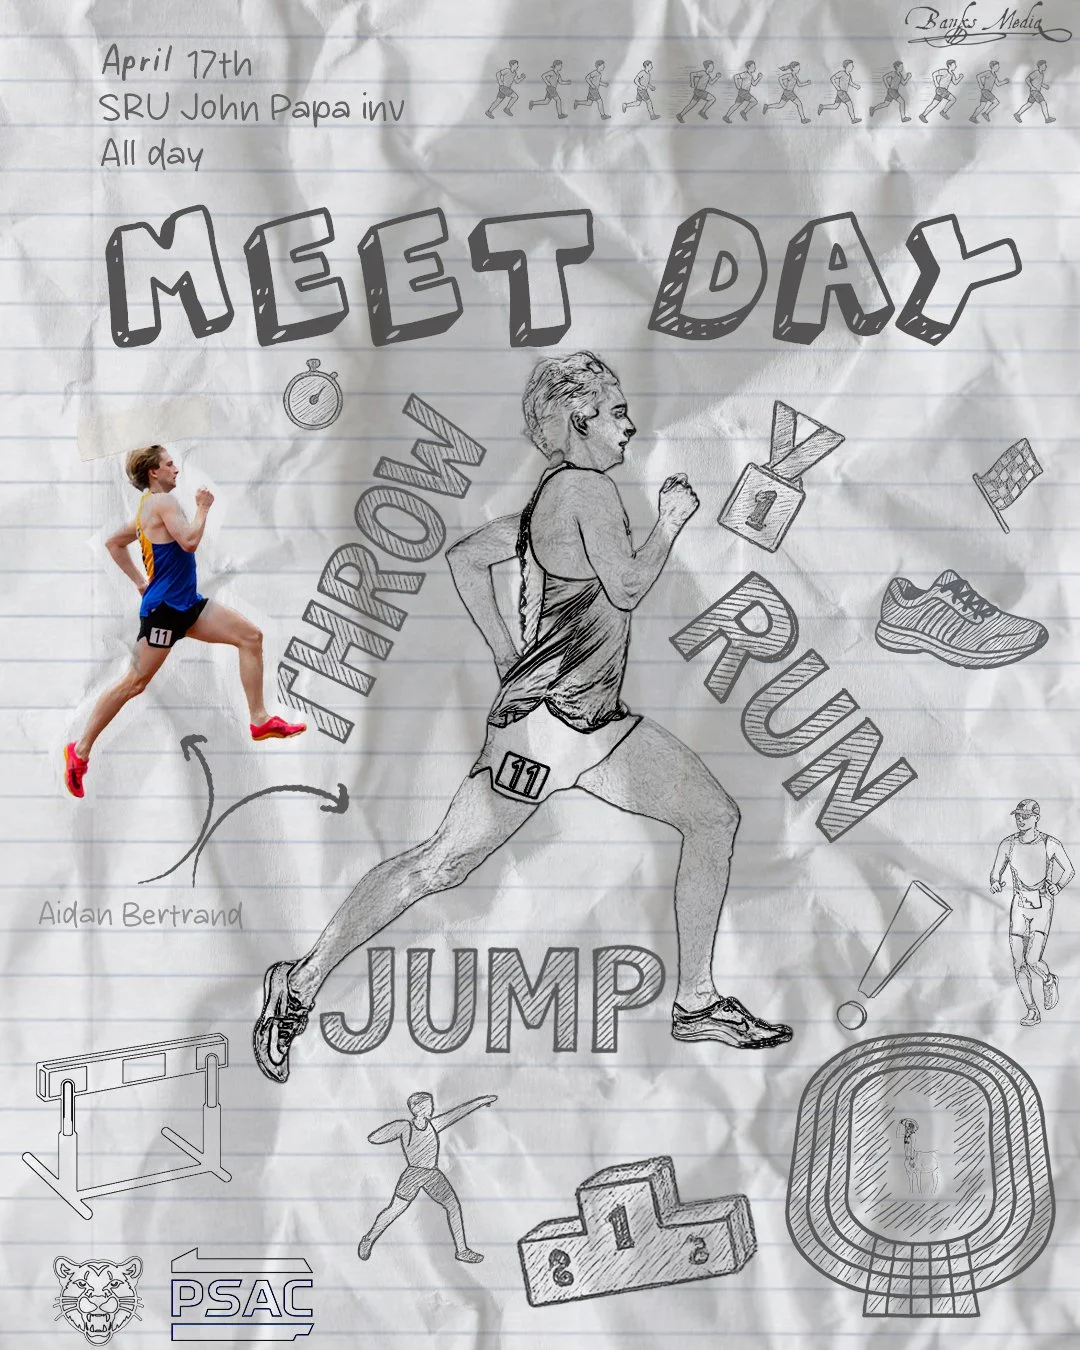 Banks Media
April 17th
SRU John Papa inv
All day
MEET DAY
THROW
1
RUN
11
11
Aidan Bertrand
JUMP
!
1
2
3
PSAC